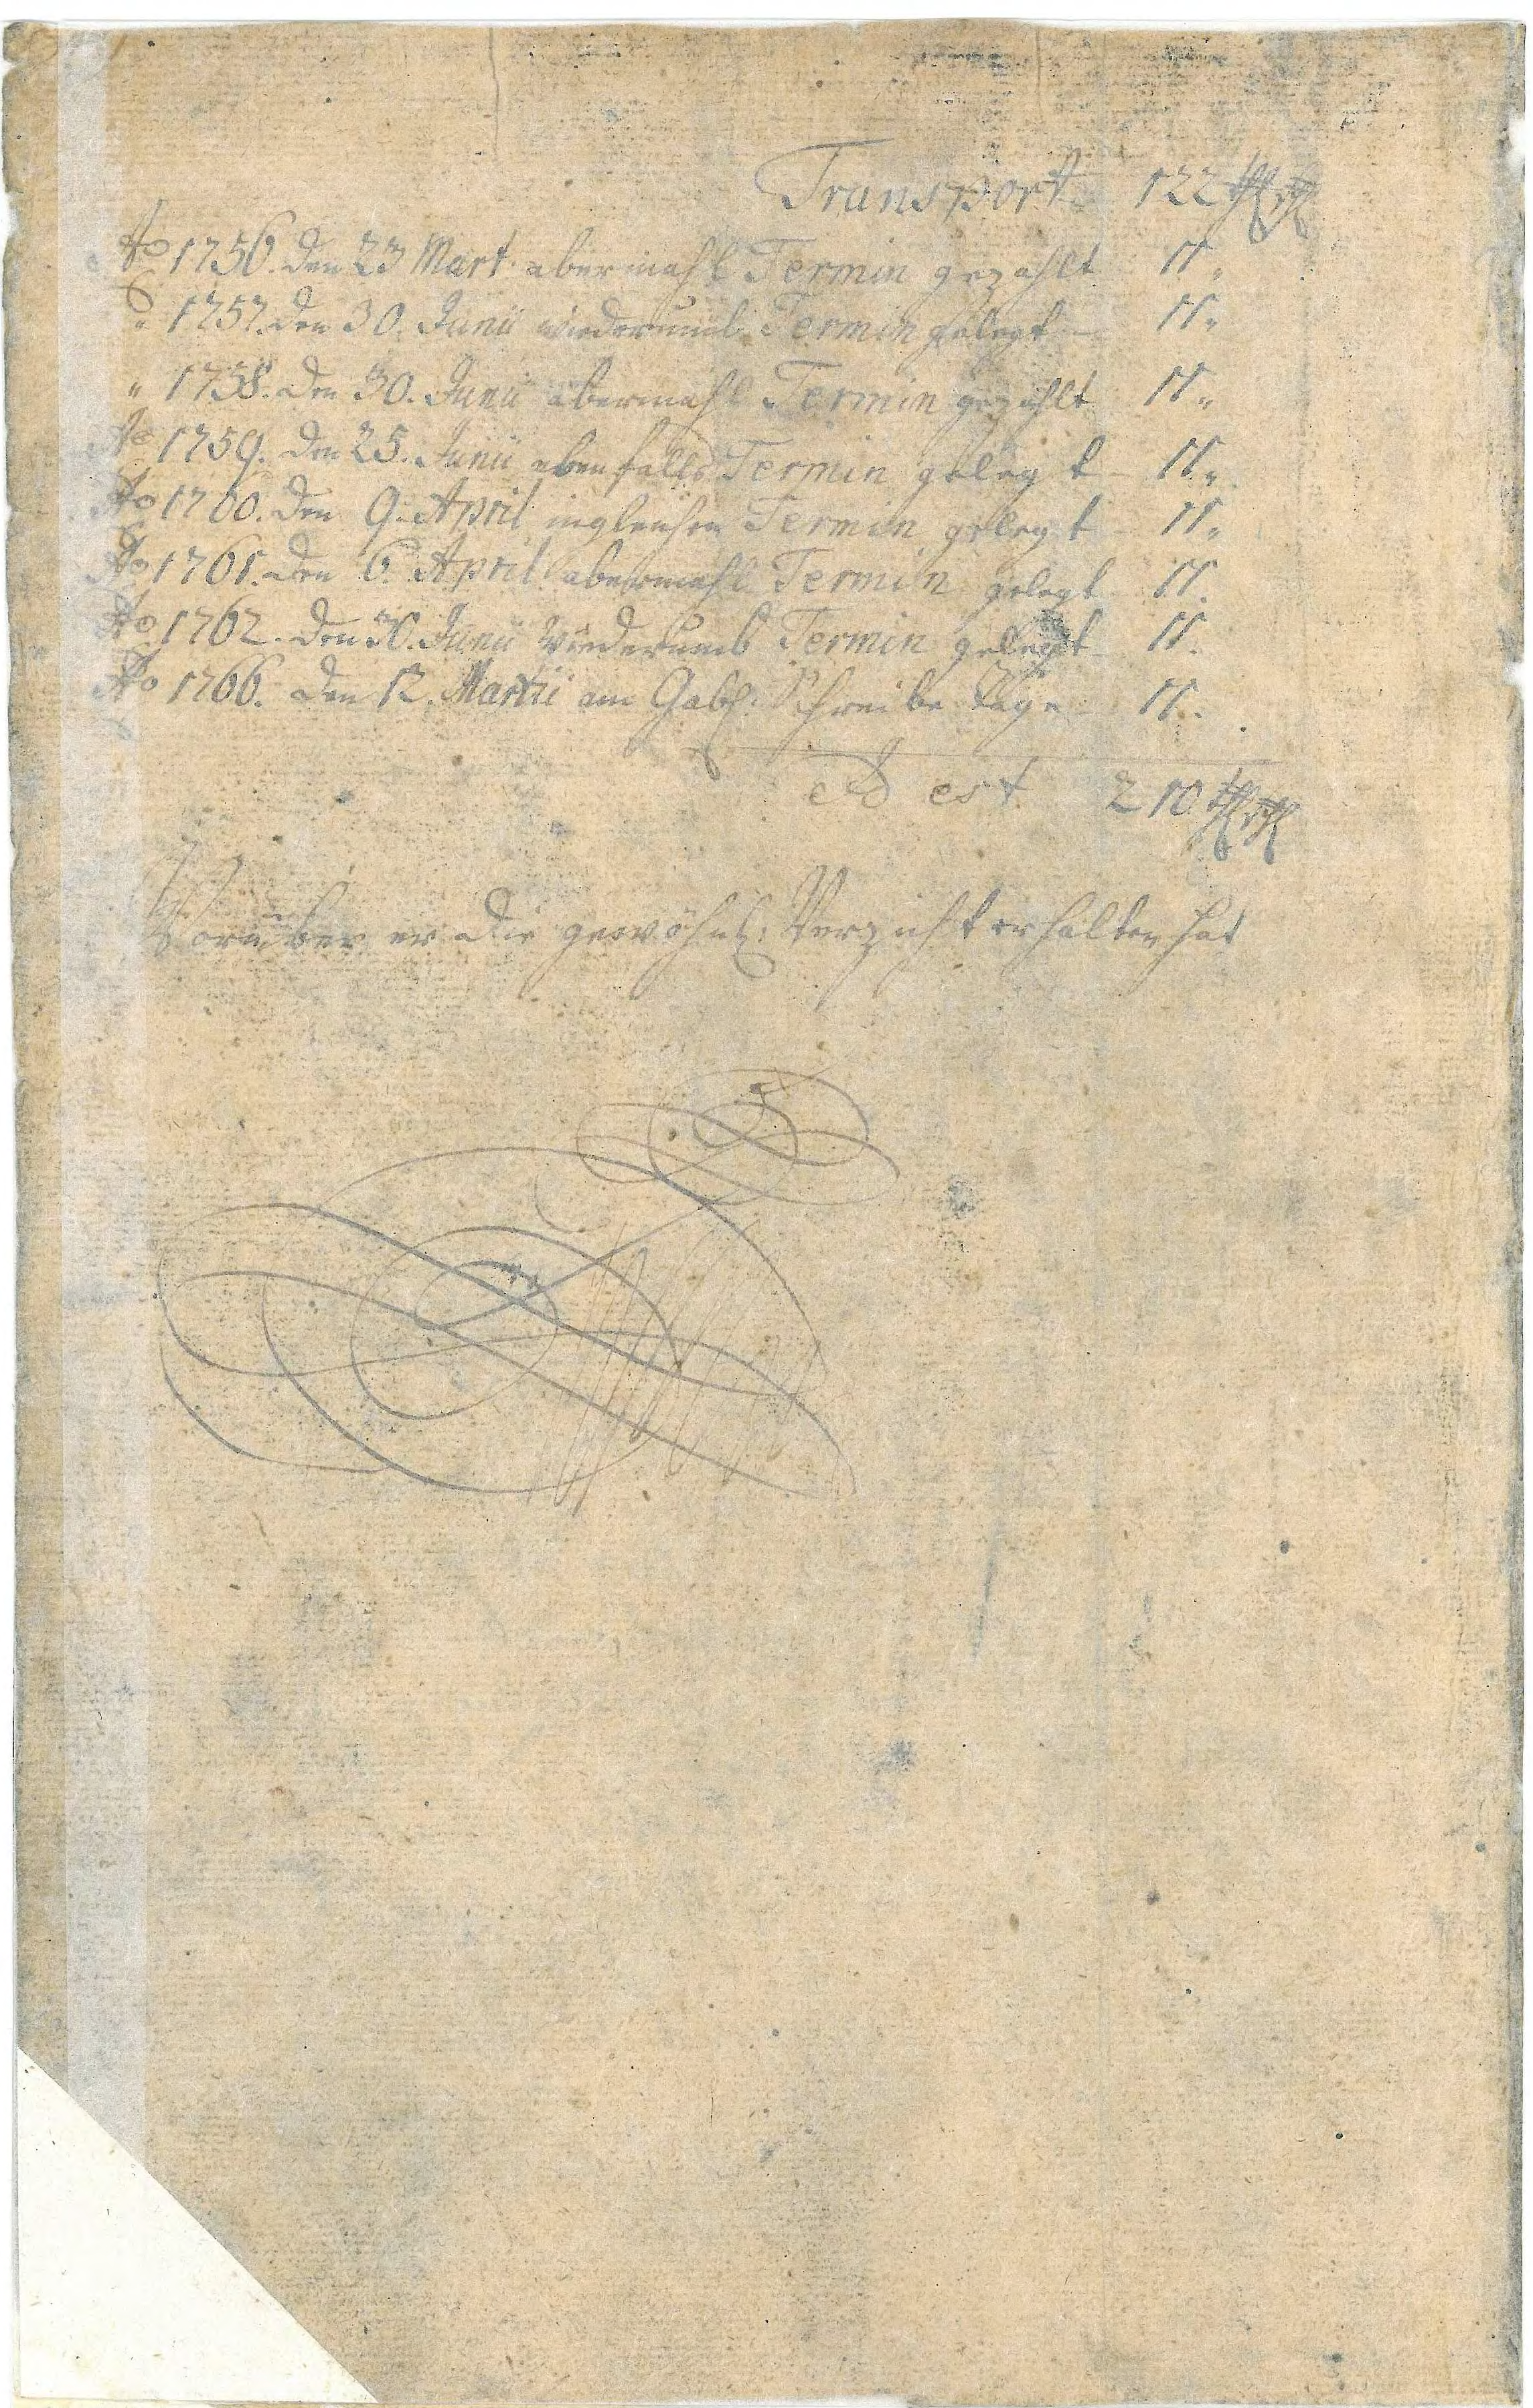 Transport 122 thl
Ao 1756. den 23 Mart. abermahl Termin gezahlt 11 "
" 1757. den 30. Junii wiederumb Termin gelegt — 11 "
" 1758. den 30. Junii abermahl Termin gezahlt 11 "
Ao 1759. den 25. Junii ebenfalls Termin gelegt — 11 "
Ao 1760. den 9. April ingleichen Termin gelegt — 11 "
Ao 1761. den 6. April abermahl Termin gelegt 11.
Ao 1762. den 30. Junii Wiederumb Termin gelegt — 11.
Ao 1766. den 12. Martii am Schreibe Tage — 11.
est 210 thl
Worüber er die gewöhnl: Verzicht erhalten hat